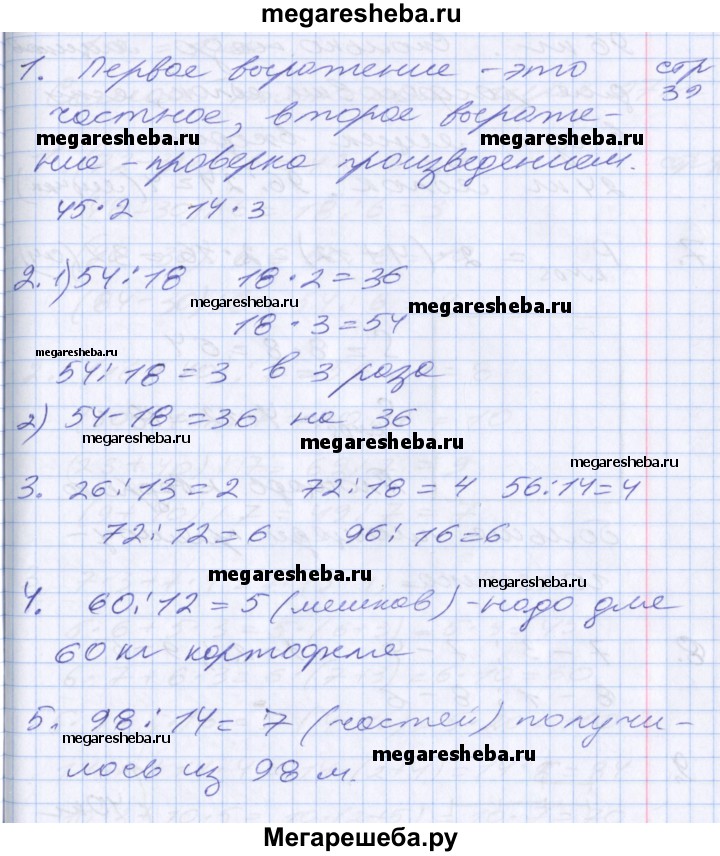 megaresheba.ru
1. Первое выражение - это стр 39
частное, второе выраже-
megaresheba.ru megaresheba.ru
ние - проверка произведением.
45·2 14·3
2. 1) 54:18 18·2=36
megaresheba.ru megaresheba.ru
18·3=54
megaresheba.ru
54:18=3 в 3 раза
2) 54-18=36 на 36
megaresheba.ru megaresheba.ru
megaresheba.ru
3. 26:13=2 72:18=4 56:14=4
72:12=6 96:16=6
megaresheba.ru megaresheba.ru
4. 60:12=5 (мешков) - надо для
60 кг картофеля
5. 98:14=7 (частей) получи-
megaresheba.ru megaresheba.ru
лось из 98 м.
Мегарешеба.ру